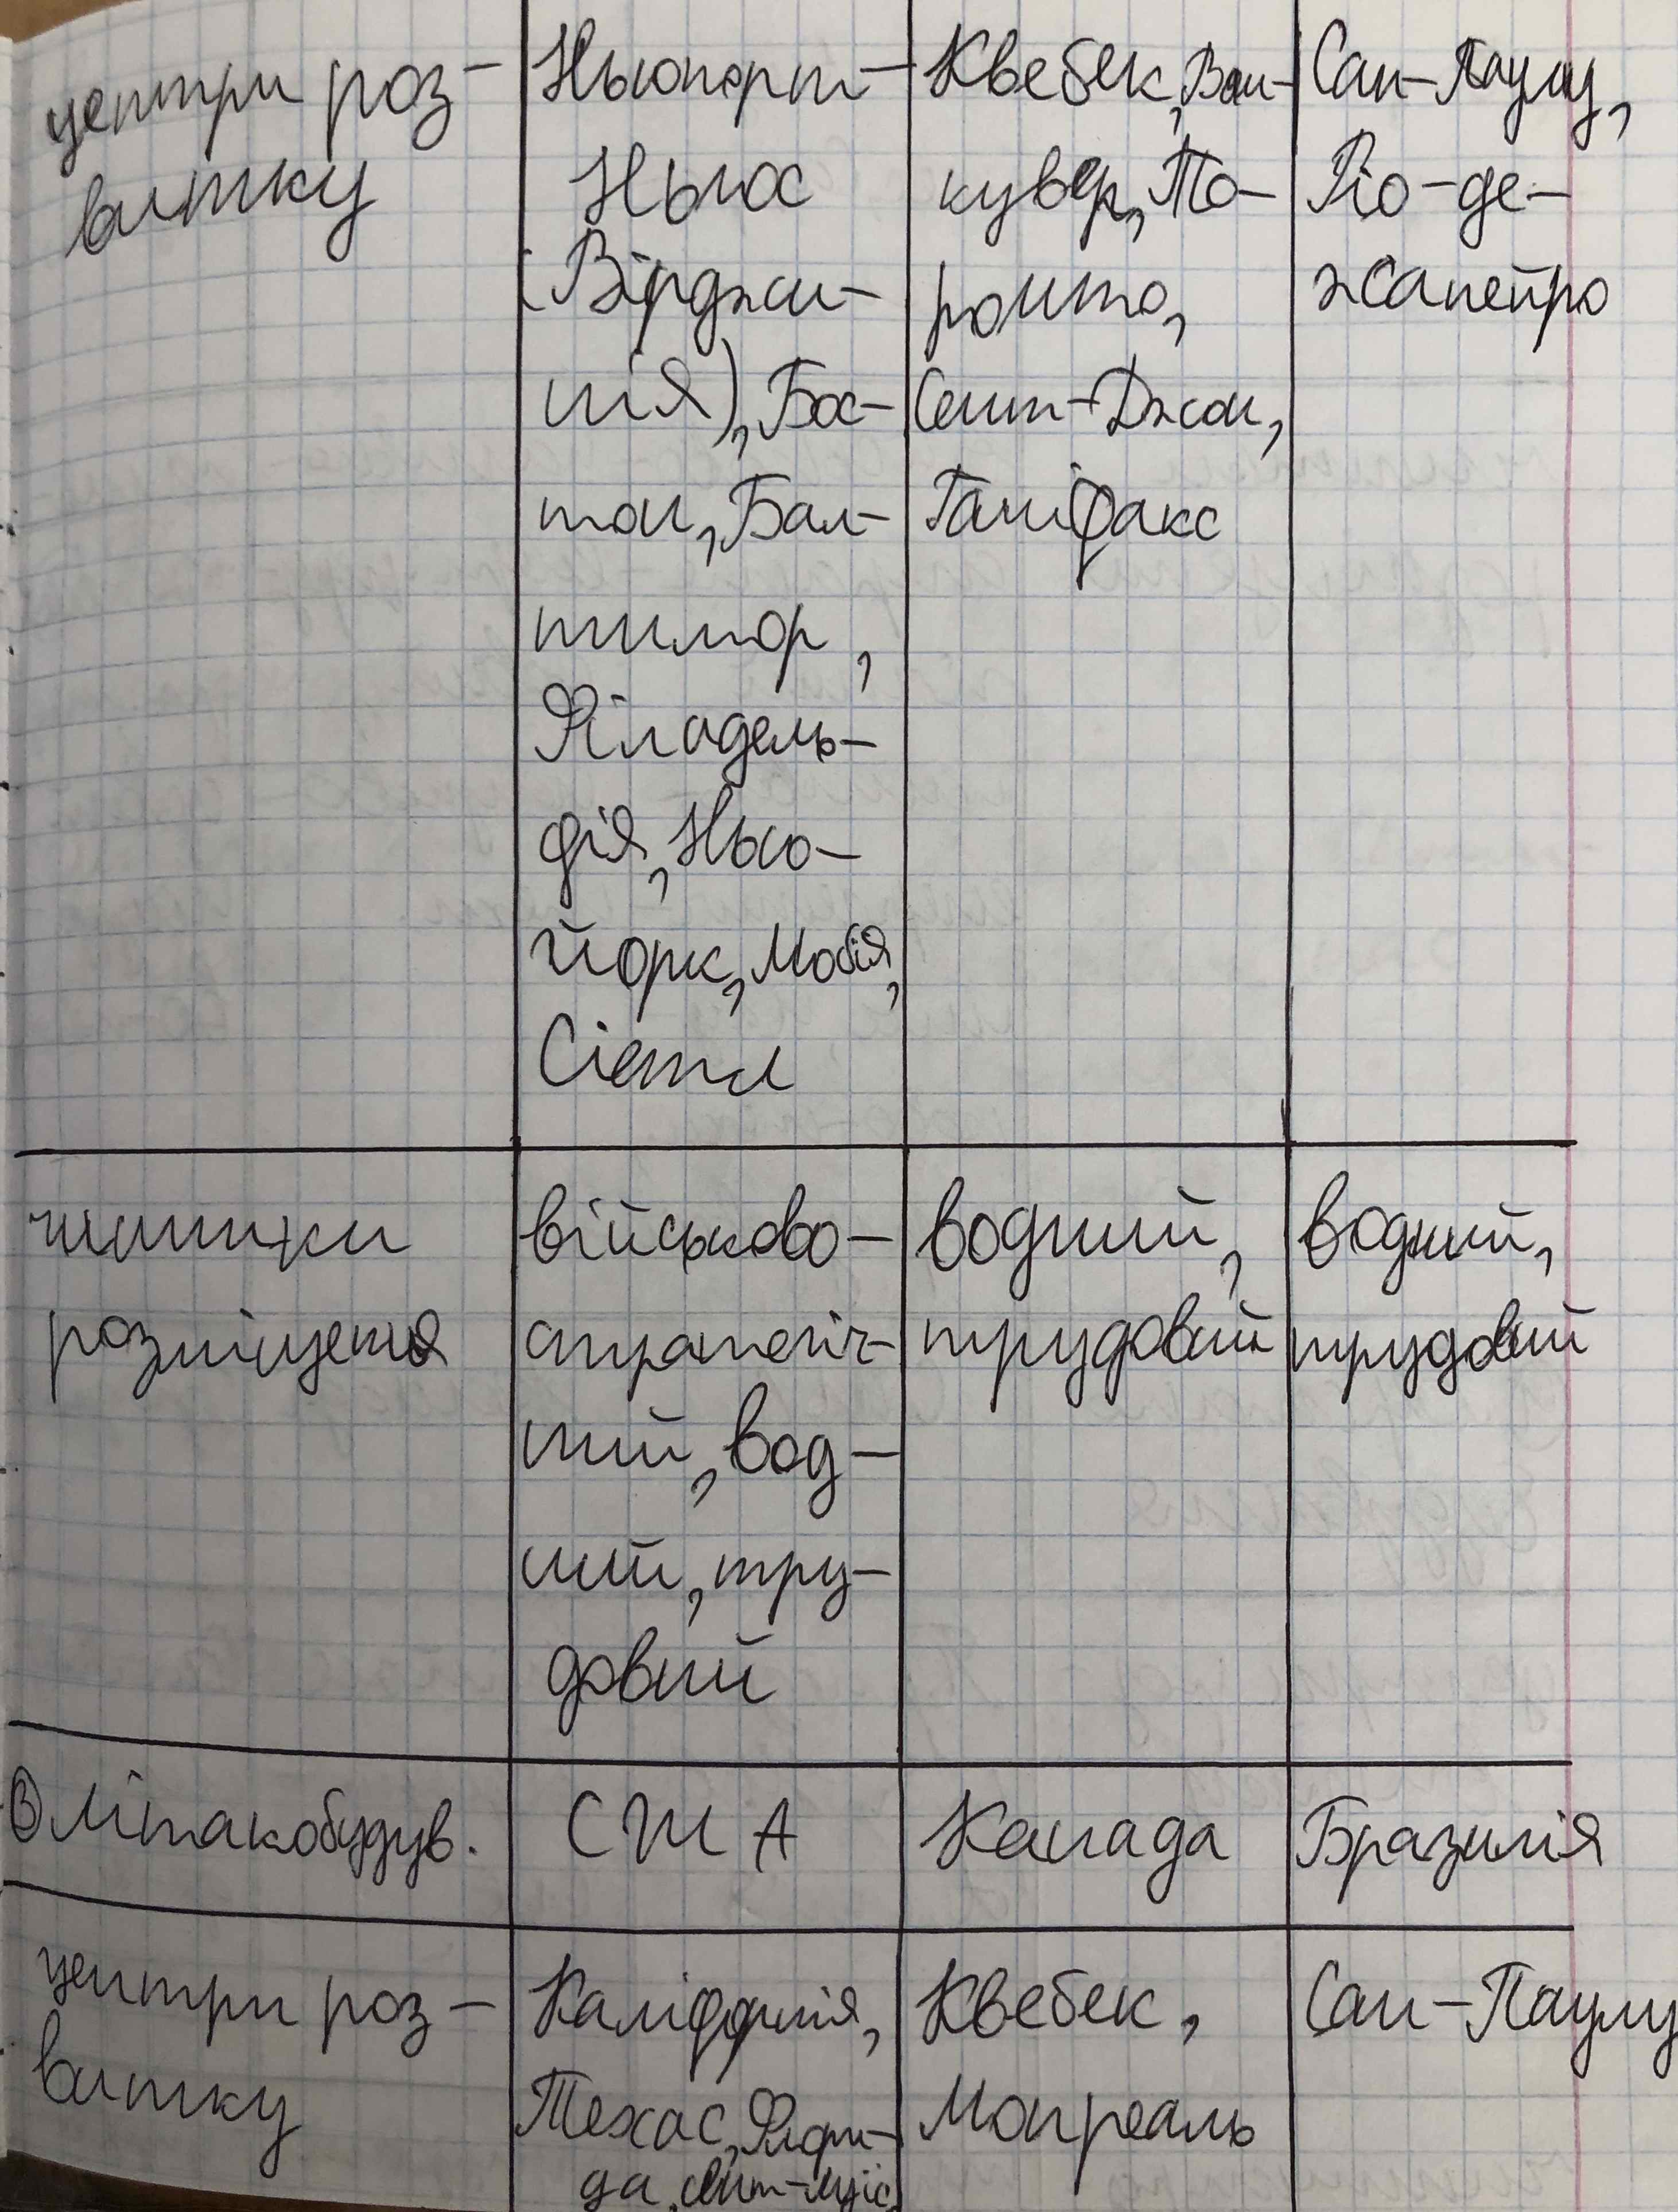 центри роз-
витку
Ньюпорт-
Ньюс
(Вірджи-
нія), Бос-
тон, Бал-
тимор,
Філадель-
фія, Нью-
Йорк, Мобіл,
Сіетл
Квебек, Ван-
кувер, То-
ронто,
Сент-Джон,
Галіфакс
Сан-Паулу,
Ріо-де-
жанейро
чинники
розміщення
військово-
стратегіч-
ний, вод-
ний, тру-
довий
водний,
трудовий
водний,
трудовий
③ літакобудув.
США
Канада
Бразилія
центри роз-
витку
Каліфорнія,
Техас, Флори-
да, Сент-Луїс
Квебек,
Монреаль
Сан-Паулу